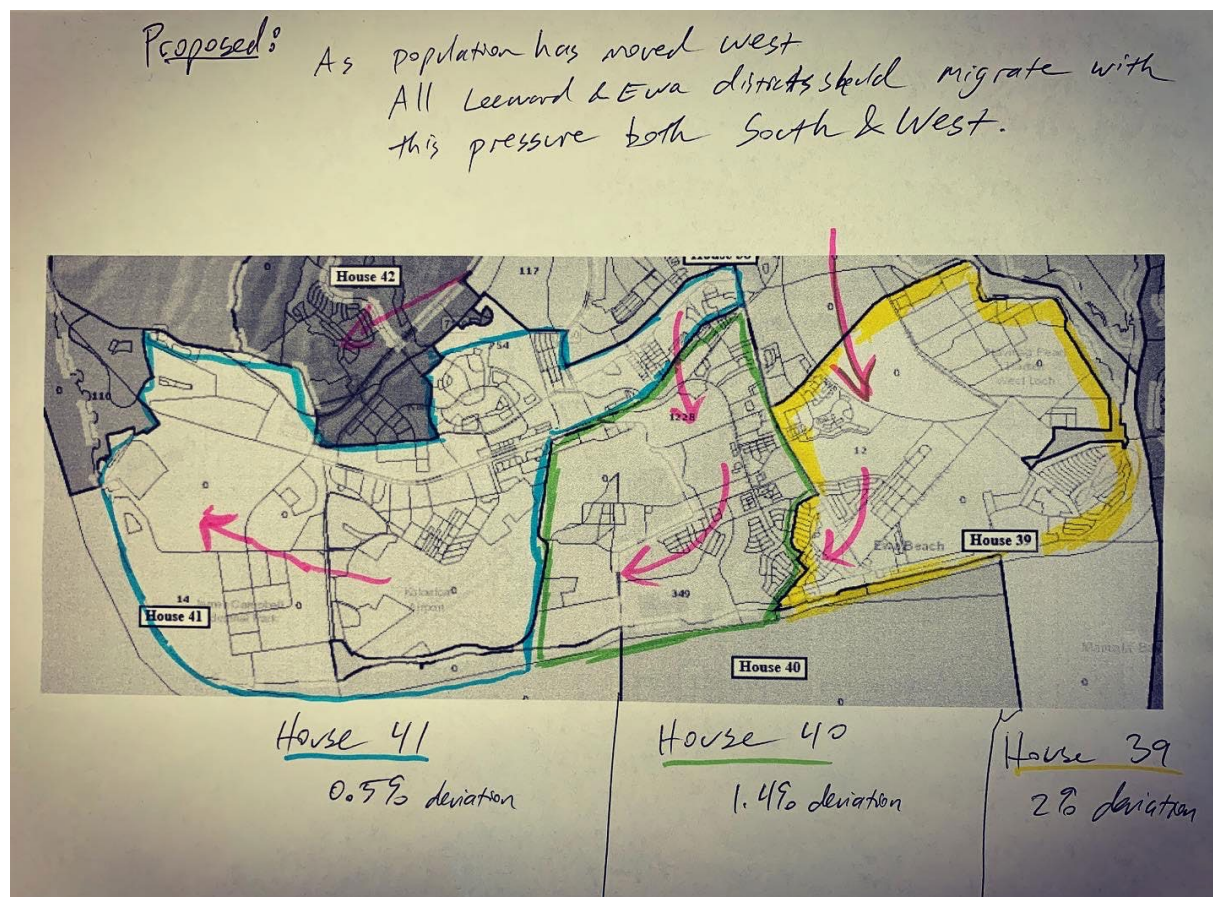 Proposed: As population has moved west
All Leeward & Ewa districts should migrate with
this pressure both South & West.
House 42
117
754
110
0
0
1228
12
0
0
0
0
0
0
House 39
Ewa Beach
14
House 41
349
House 40
0
0
House 41
0.5% deviation
House 40
1.4% deviation
House 39
2% deviation